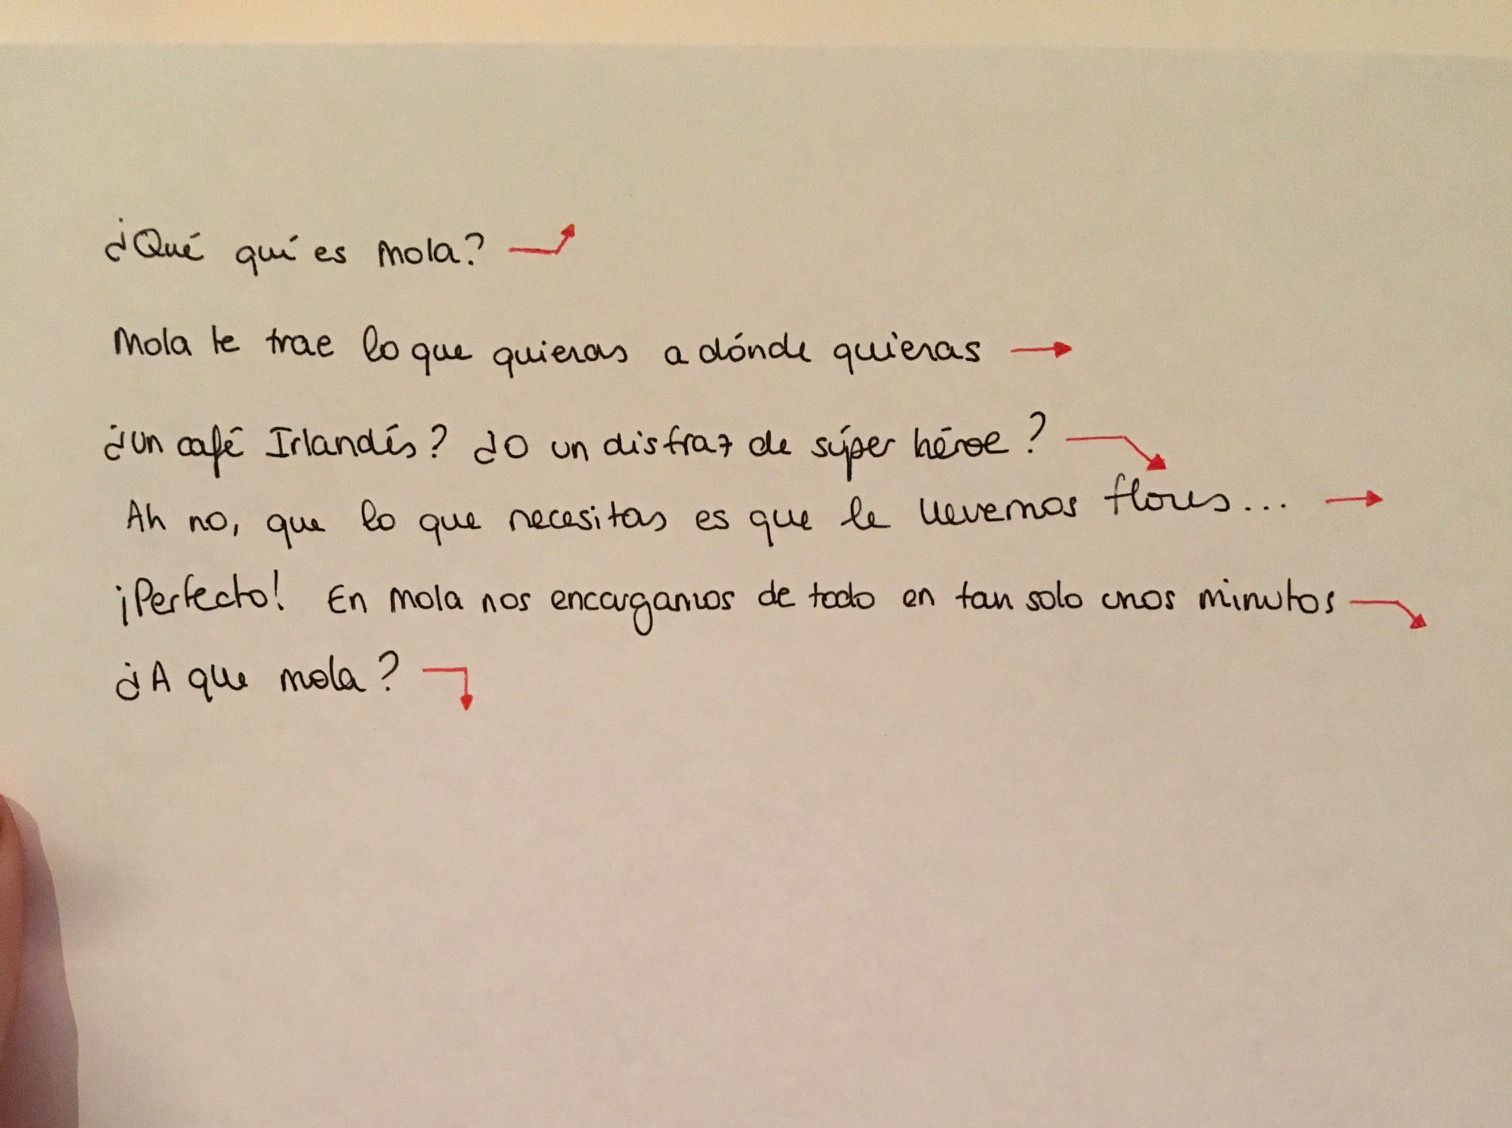 ¿Qué qué es mola?
Mola te trae lo que quieras a dónde quieras
¿Un café Irlandés? ¿O un disfraz de súper héroe?
Ah no, que lo que necesitas es que le llevemos flores...
¡Perfecto! En mola nos encargamos de todo en tan solo unos minutos
¿A que mola?